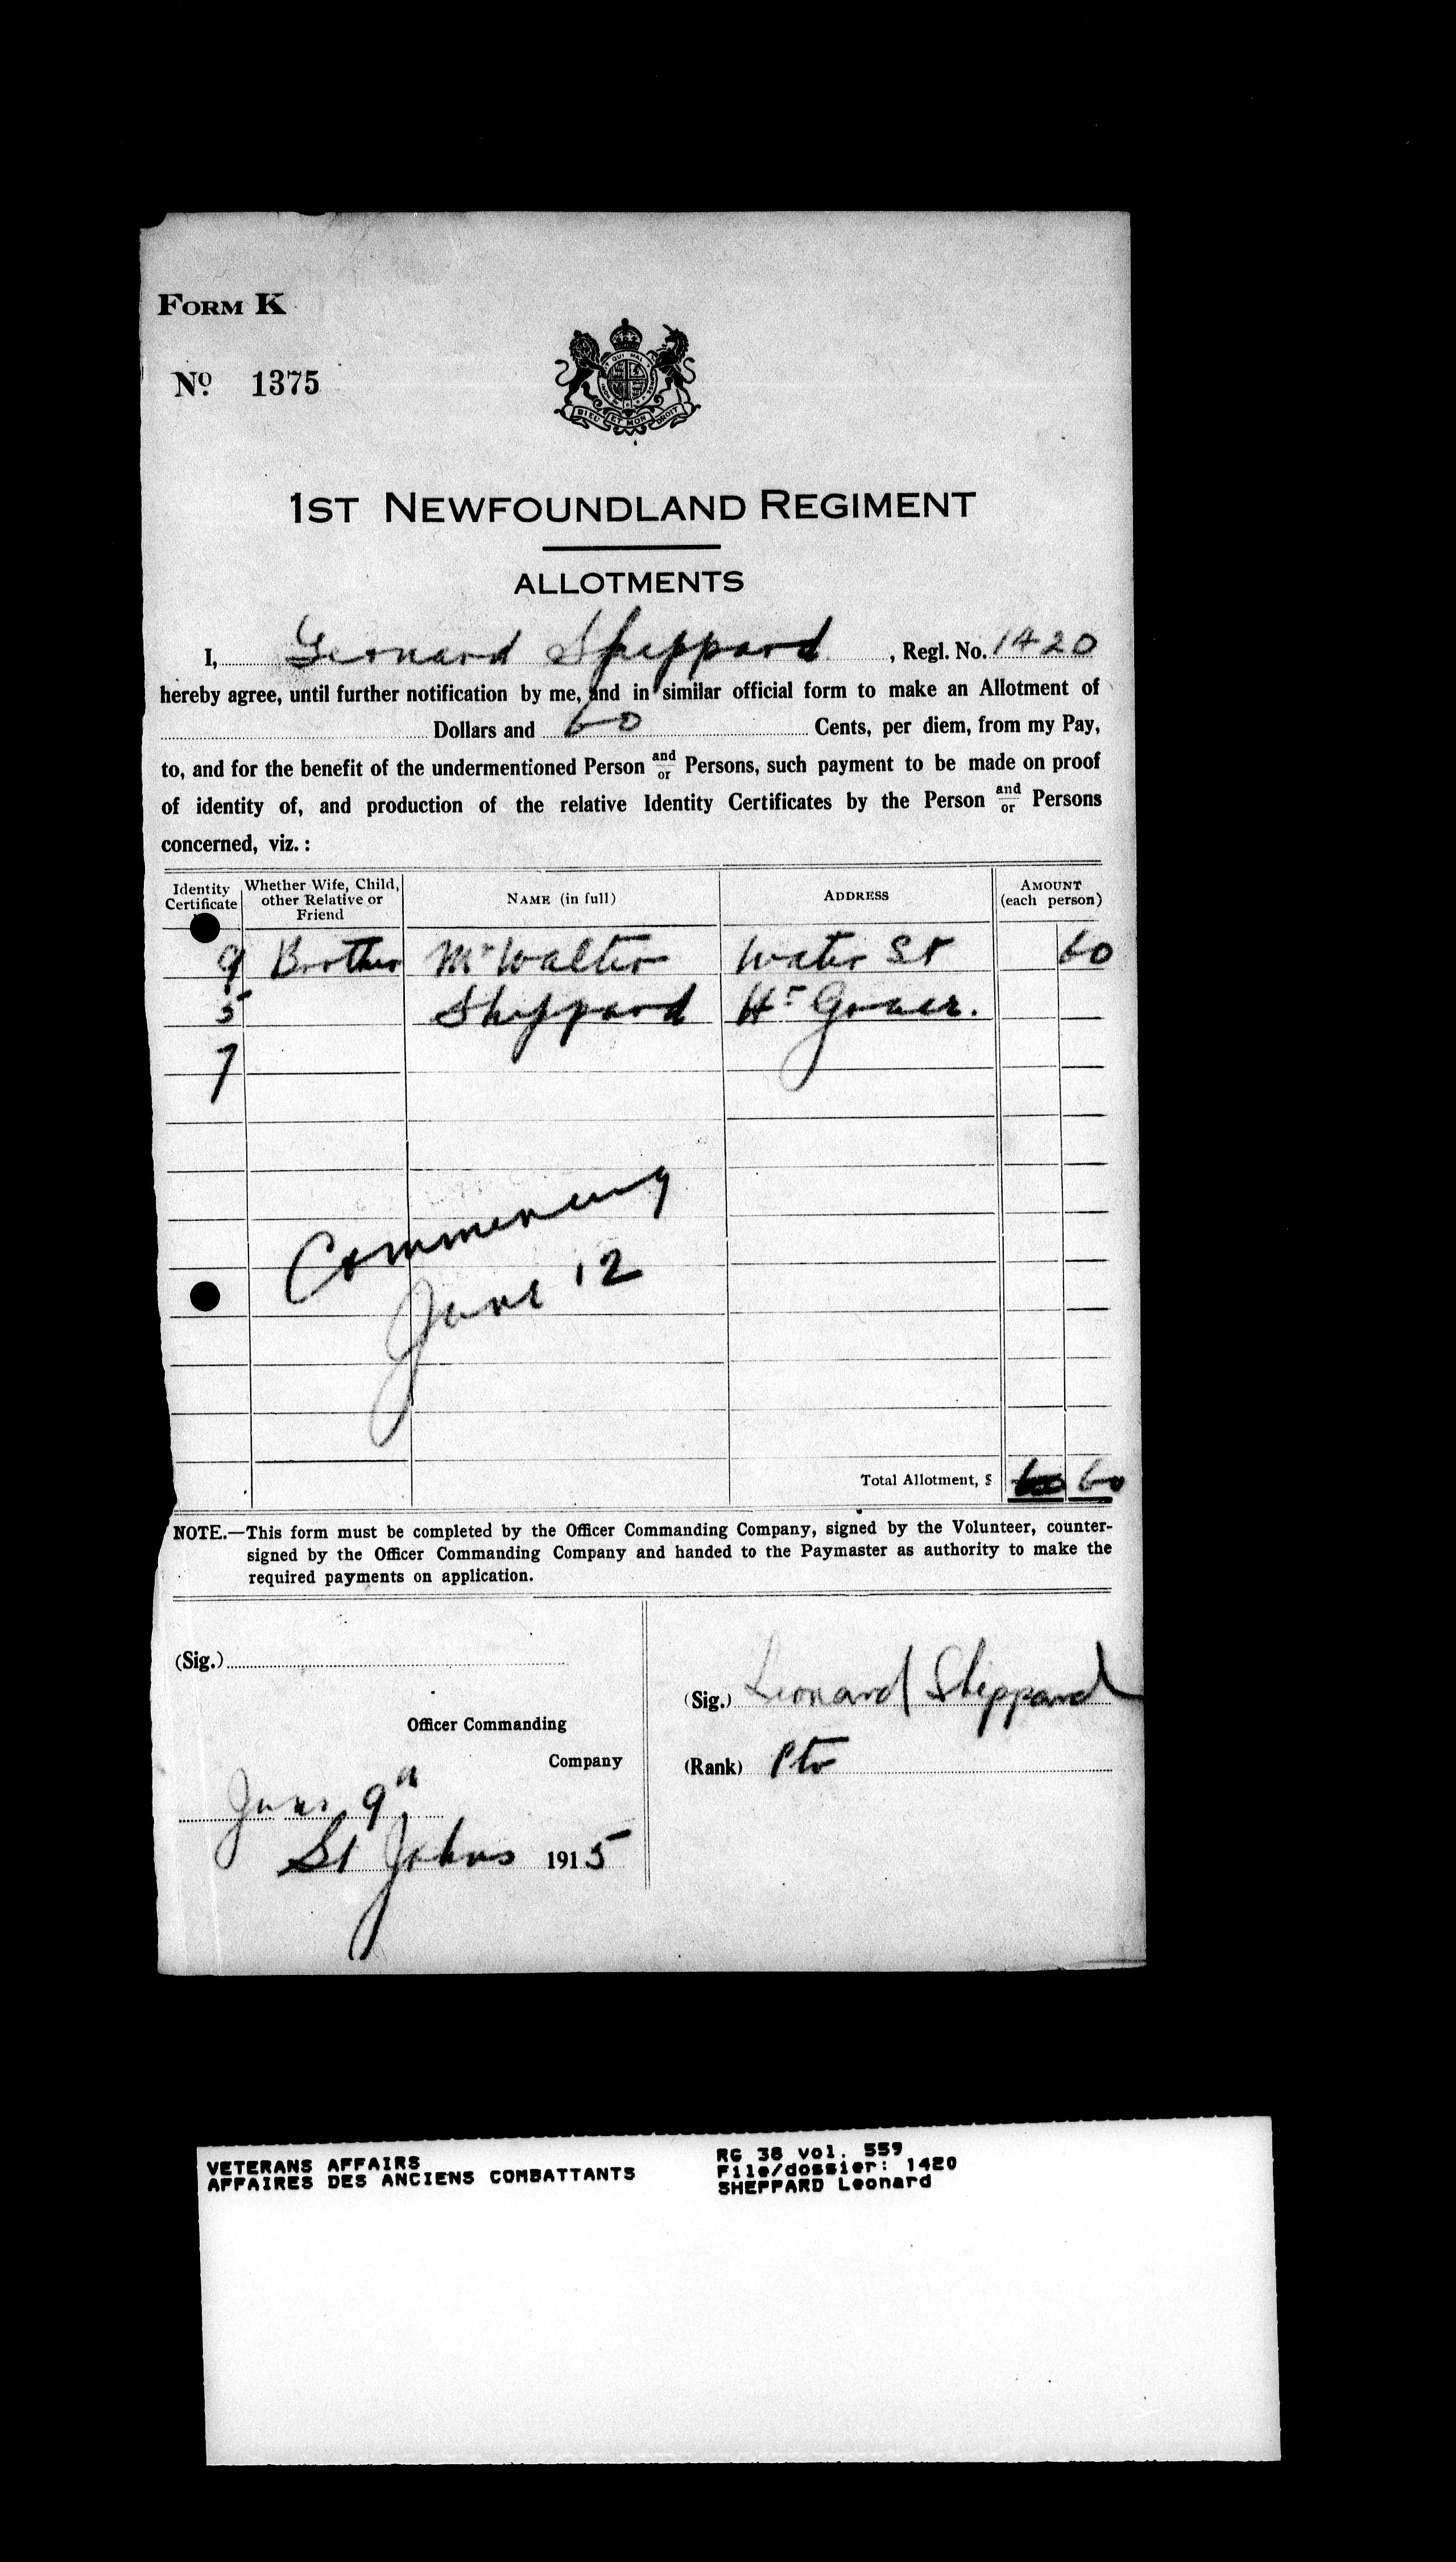 FORM K
No. 1375
QUI MAL
DIEU ET MON DROIT
1ST NEWFOUNDLAND REGIMENT
ALLOTMENTS
I, Leonard Sheppard, Regl. No. 1420
hereby agree, until further notification by me, and in similar official form to make an Allotment of
Dollars and 60 Cents, per diem, from my Pay,
to, and for the benefit of the undermentioned Person and/or Persons, such payment to be made on proof
of identity of, and production of the relative Identity Certificates by the Person and/or Persons
concerned, viz. :
Identity Certificate Whether Wife, Child, other Relative or Friend NAME (in full) ADDRESS AMOUNT (each person)
9 Brother Mr Walter Water St 60
5 Sheppard Hr Grace.
7
Commencing
June 12
Total Allotment, $ 60 60
NOTE.—This form must be completed by the Officer Commanding Company, signed by the Volunteer, counter-
signed by the Officer Commanding Company and handed to the Paymaster as authority to make the
required payments on application.
(Sig.)
(Sig.) Leonard Sheppard
Officer Commanding
Company
(Rank) Pte
June 9th
St Johns 1915
VETERANS AFFAIRS
AFFAIRES DES ANCIENS COMBATTANTS
RG 38 Vol. 559
File/dossier: 1420
SHEPPARD Leonard